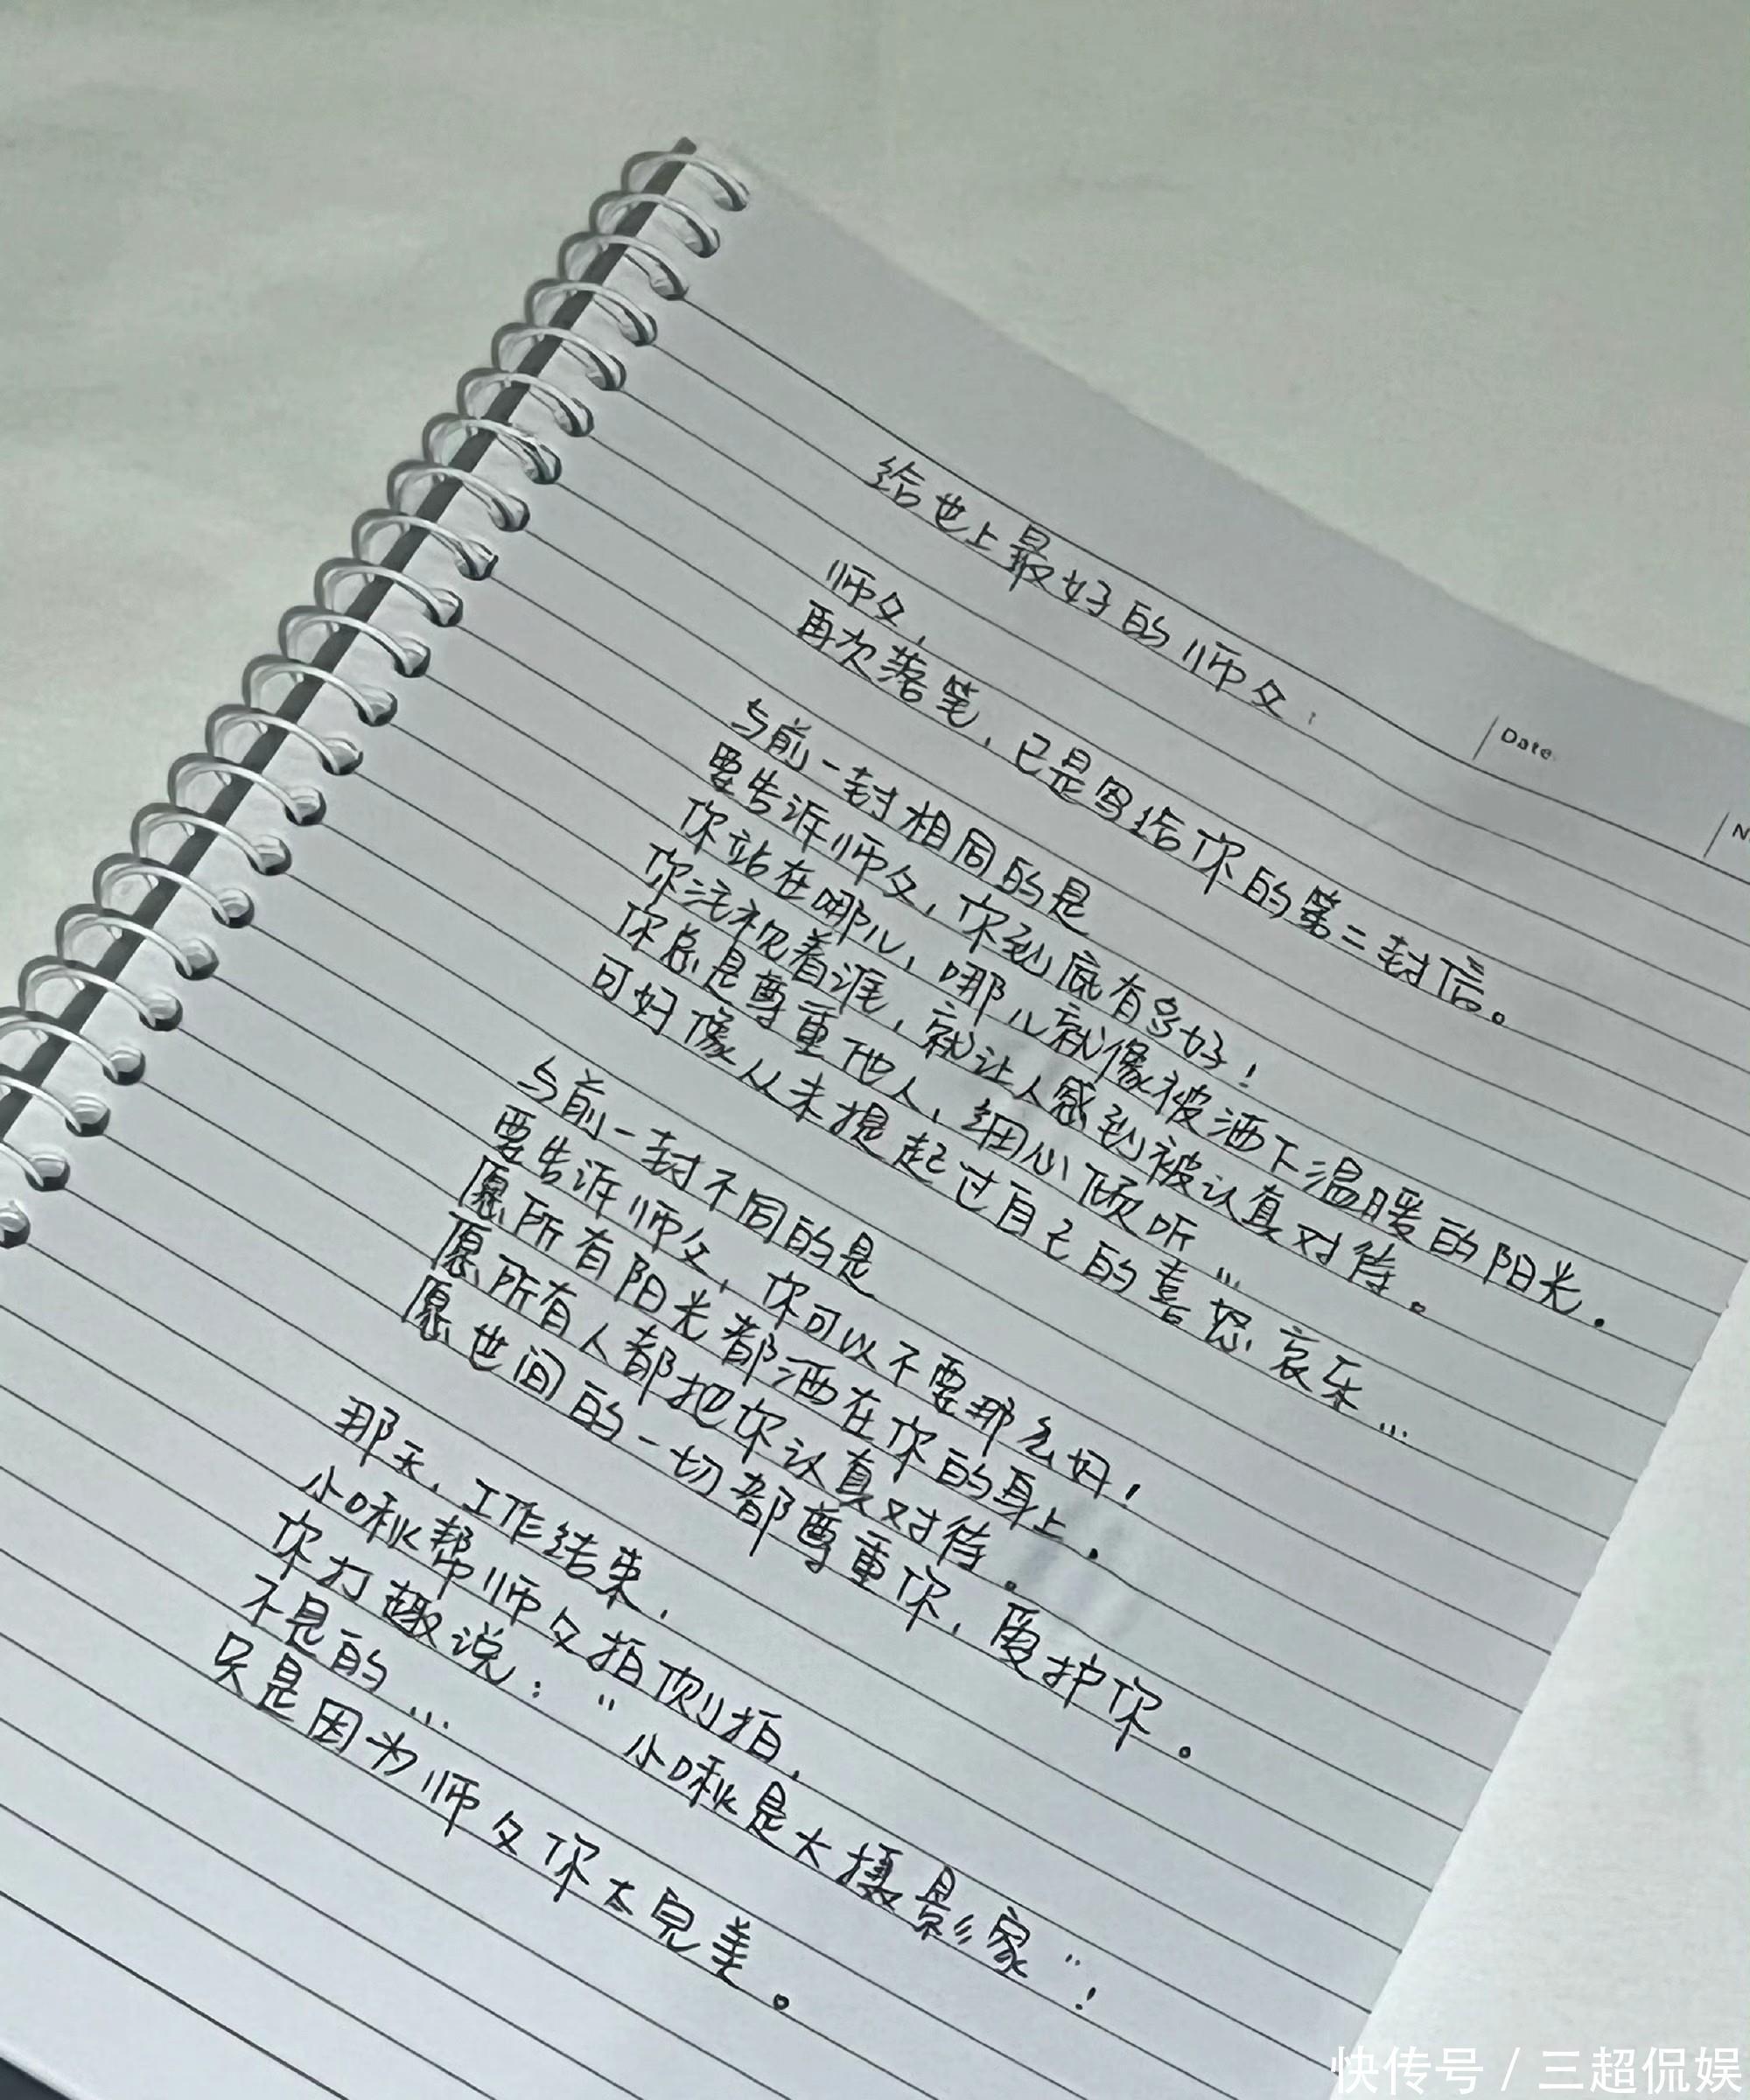 给世上最好的师父：
Date.
N
师父，
再次落笔，已是写给你的第二封信。
与前一封相同的是
要告诉师父，你到底有多好！
你站在哪儿，哪儿就像被洒下温暖的阳光．
你注视着谁，就让人感到被认真对待。
你总是尊重他人，细心倾听…
可好像从未提起过自己的喜怒哀乐…
与前一封不同的是
要告诉师父，你可以不要那么好！
愿所有阳光都洒在你的身上．
愿所有人都把你认真对待。
愿世间的一切都尊重你，爱护你。
那天，工作结束，
小啾帮师父拍侧拍，
你打趣说：“小啾是大摄影家”！
不是的…
只是因为师父你太完美。
快传号 / 三超侃娱